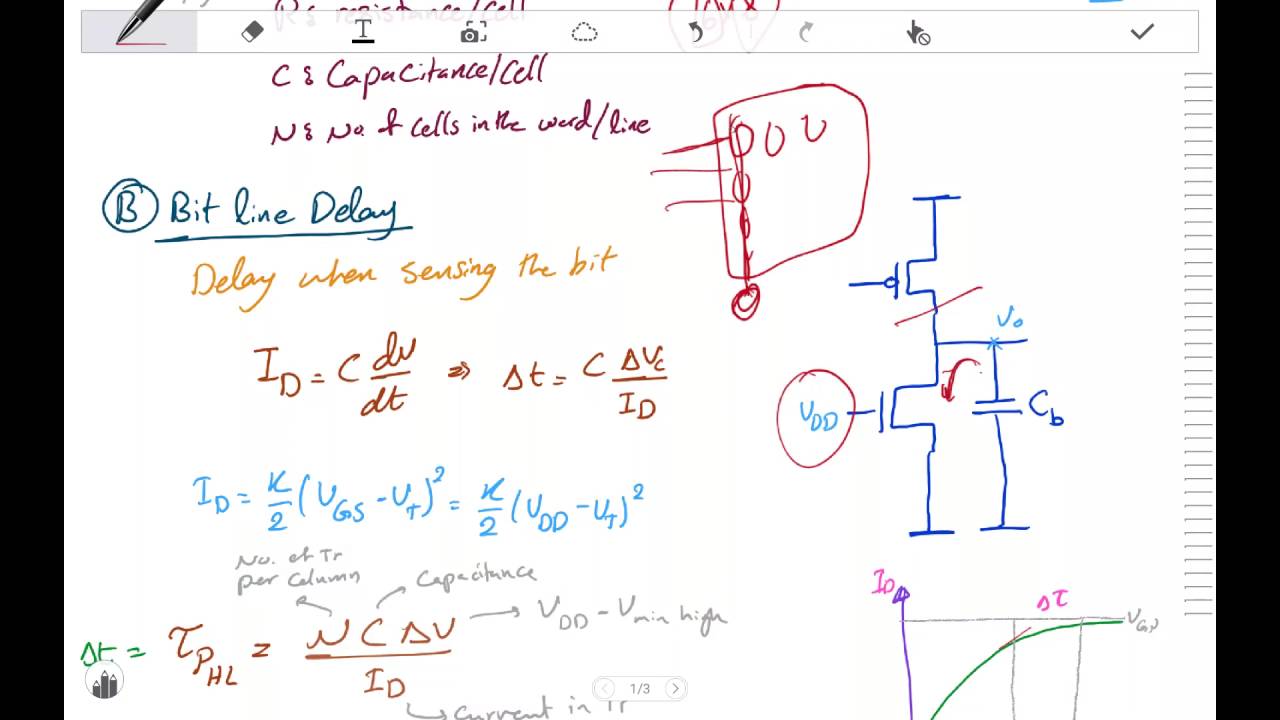 R : resistance/cell
C : Capacitance/Cell
N : No. of cells in the word/line
B Bit line Delay
Delay when sensing the bit
I_D = C dv/dt => Δt = C ΔVc/I_D
I_D = K/2 (V_GS - V_T)^2 = K/2 (V_DD - V_T)^2
No. of Tr
per column
Capacitance
V_DD - V_min high
Δt = τ_PHL = N C ΔV / I_D
Current in Tr
Vo
V_DD
C_b
I_D
Δτ
1/3
T